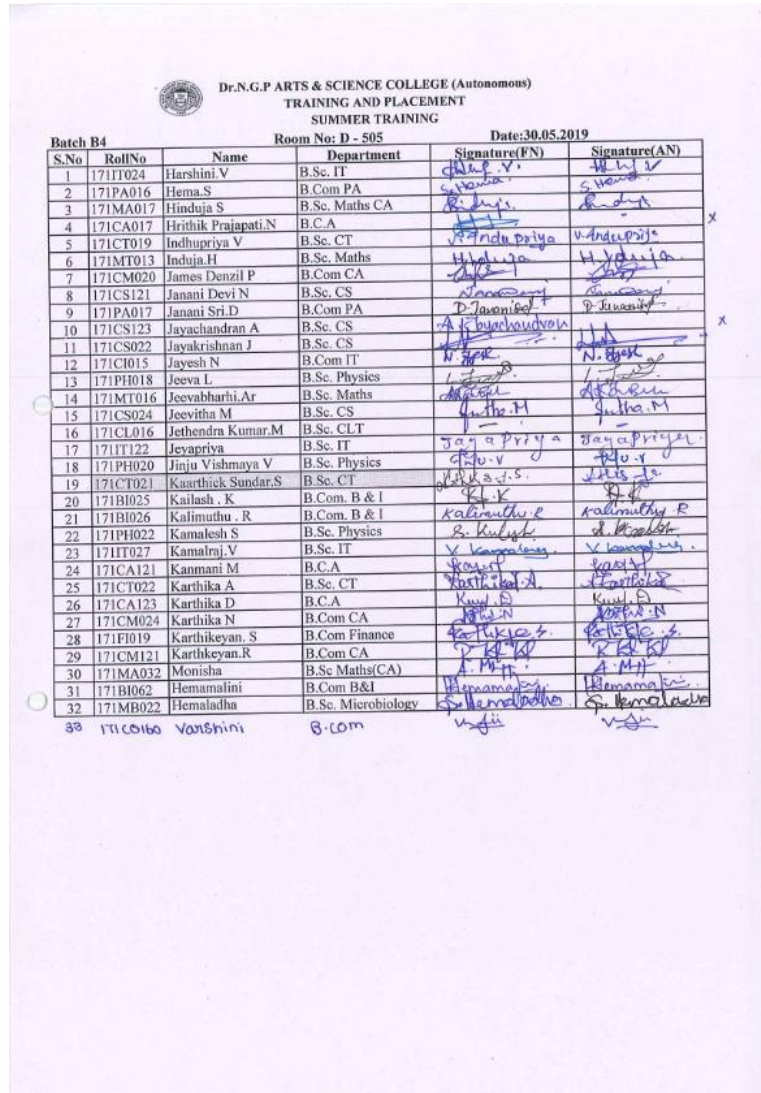 Dr.N.G.P ARTS & SCIENCE COLLEGE (Autonomous)
TRAINING AND PLACEMENT
SUMMER TRAINING
Batch B4 Room No: D - 505 Date:30.05.2019
S.No RollNo Name Department Signature(FN) Signature(AN)
1 171IT024 Harshini.V B.Sc. IT
2 171PA016 Hema.S B.Com PA S.Hema S.Hema
3 171MA017 Hinduja S B.Sc. Maths CA
4 171CA017 Hrithik Prajapati.N B.C.A - x
5 171CT019 Indhupriya V B.Sc. CT V.Indupriya V.Indupriya
6 171MT013 Induja.H B.Sc. Maths H.Induja H.Induja
7 171CM020 James Denzil P B.Com CA
8 171CS121 Janani Devi N B.Sc. CS
9 171PA017 Janani Sri.D B.Com PA
10 171CS123 Jayachandran A B.Sc. CS A Jayachandran x
11 171CS022 Jayakrishnan J B.Sc. CS
12 171CI015 Jayesh N B.Com IT
13 171PH018 Jeeva L B.Sc. Physics
14 171MT016 Jeevabharhi.Ar B.Sc. Maths
15 171CS024 Jeevitha M B.Sc. CS
16 171CL016 Jethendra Kumar.M B.Sc. CLT - -
17 171IT122 Jeyapriya B.Sc. IT JayaPriya
18 171PH020 Jinju Vishmaya V B.Sc. Physics
19 171CT021 Kaarthick Sundar.S B.Sc. CT
20 171BI025 Kailash . K B.Com. B & I
21 171BI026 Kalimuthu . R B.Com. B & I Kalimuthu.R Kalimuthu.R
22 171PH022 Kamalesh S B.Sc. Physics
23 171IT027 Kamalraj.V B.Sc. IT
24 171CA121 Kanmani M B.C.A
25 171CT022 Karthika A B.Sc. CT Karthika.A
26 171CA123 Karthika D B.C.A
27 171CM024 Karthika N B.Com CA
28 171FI019 Karthikeyan. S B.Com Finance
29 171CM121 Karthkeyan.R B.Com CA
30 171MA032 Monisha B.Sc Maths(CA)
31 171BI062 Hemamalini B.Com B&I Hemamalini Hemamalini
32 171MB022 Hemaladha B.Sc. Microbiology S. Hemaladha S. Hemaladha
33 171CO160 Varshini B.com